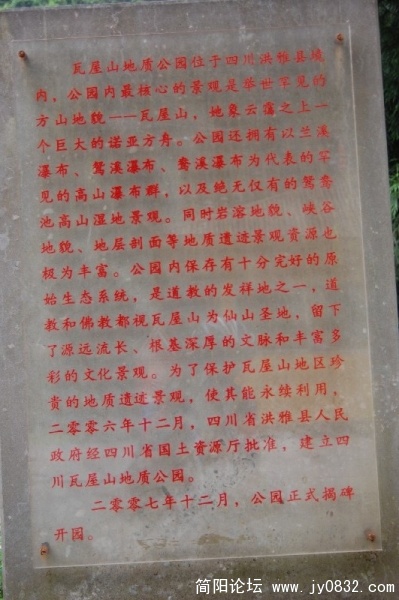 瓦屋山地质公园位于四川洪雅县境
内，公园内最核心的景观是举世罕见的
方山地貌——瓦屋山，她象云霭之上一
个巨大的诺亚方舟。公园还拥有以兰溪
瀑布、鸳溪瀑布、鸯溪瀑布为代表的罕
见的高山瀑布群，以及绝无仅有的鸳鸯
池高山湿地景观。同时岩溶地貌、峡谷
地貌、地层剖面等地质遗迹景观资源也
极为丰富。公园内保存有十分完好的原
始生态系统，是道教的发祥地之一，道
教和佛教都视瓦屋山为仙山圣地，留下
了源远流长、根基深厚的文脉和丰富多
彩的文化景观。为了保护瓦屋山地区珍
贵的地质遗迹景观，使其能永续利用，
二零零六年十二月，四川省洪雅县人民
政府经四川省国土资源厅批准，建立四
川瓦屋山地质公园。
二零零七年十二月，公园正式揭碑
开园。
简阳论坛 www.jy0832.com